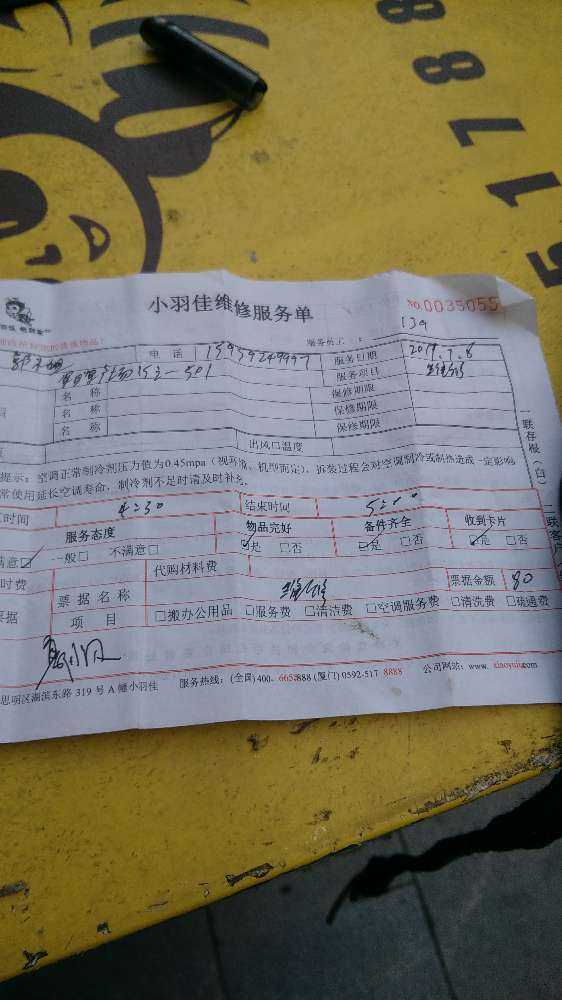 8
8
1
7
5
小羽佳维修服务单
NO.0035055
服务员工 : 139
电 话 服务日期 2019.7.8
服务项目 维修
名 称 保修期限
名 称 保修期限
名 称 保修期限
出风口温度
提示：空调正常制冷剂压力值为0.45mpa（视环境、机型而定）。拆装过程会对空调制冷或制热造成一定影响
常使用延长空调寿命，制冷剂不足时请及时补充。
时间 4:30 结束时间
服务态度 物品完好 备件齐全 收到卡片
满意☑ 一般□ 不满意□ ☑是 □否 ☑是 □否 ☑是 □否
时费 代购材料费
票据 票据名称 维修 票据金额 80
项 目 □搬办公用品 □服务费 □清洁费 □空调服务费 □清洗费 □疏通费
思明区湖滨东路 319 号 A 幢小羽佳 服务热线：(全国)400- 6652888 (厦门) 0592-517 8888 公司网站：www. xiaoyujia.com
联存根（白）
二联客户